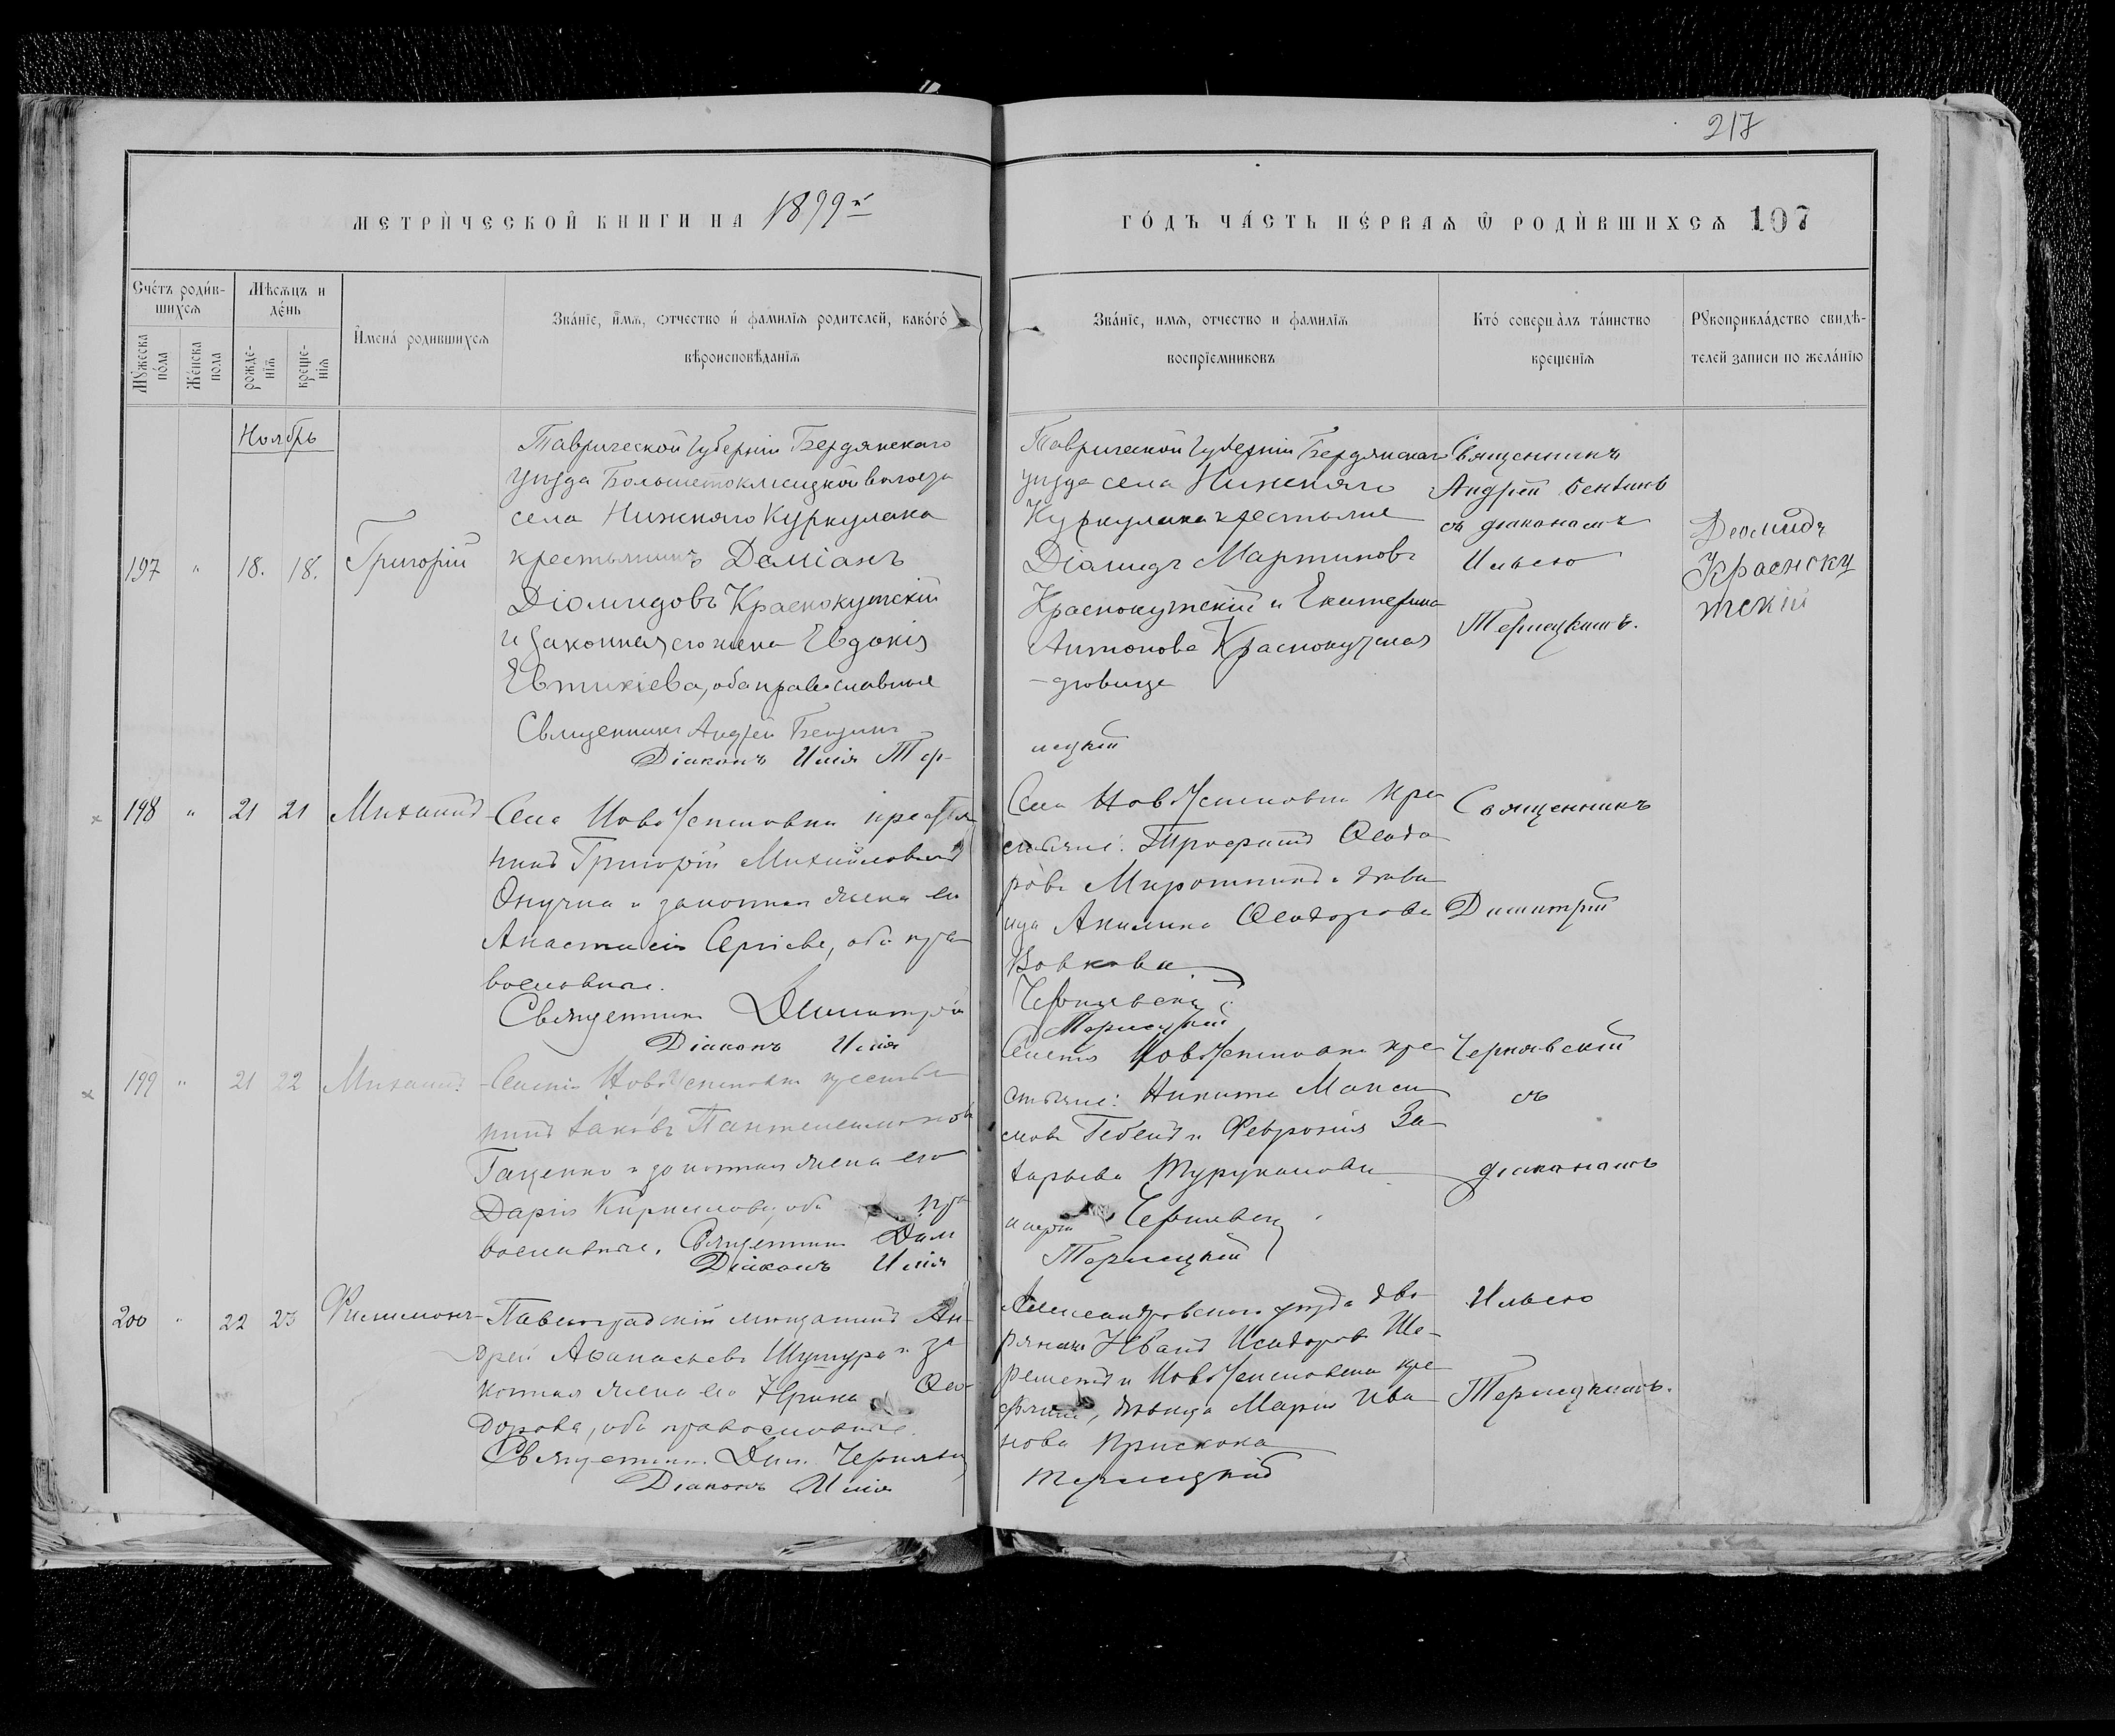 217
МЕТРИ́ЧЕСКОЙ КНИГИ НА 1899й
ГО́ДЪ ЧА́СТЬ ПЕ́РВАѦ Ѽ РОДИ́ВШИХСѦ 107
Сче́тъ роди́в-
шихсѧ
Мꙋ́жеска по́ла
Же́нска пола
Мѣ́сѧцъ и
де́нь
рожде-
нїѧ
креще-
нїѧ
И҆мена́ роди́вшихсѧ
Зва́нїе, и҆́мѧ, ѻ҆́тчество и҆ фами́лїѧ роди́телей, како́гѡ
вѣроисповѣ́данїѧ
Зва́нїе, имѧ, отчество и фамилїѧ
воспрїемниковъ
Кто́ соверша́лъ та́инство
креще́нїѧ
Рꙋкоприкла́дство свидѣ́-
телей записи по жела́нїю
Ноябрь
197 " 18. 18. Григорій
Таврической Губерніи Бердянскаго
уѣзда Большетокмацкой волости
села Нижняго Куркулака
крестьянинъ Даміанъ
Діомидовъ Краснокутскій
и законная его жена Евдокія
Евтихіева, оба православные
Священникъ Андрей
Діаконъ Илія Тер-
Таврической Губерніи Бердянскаго
уѣзда села Нижняго
Куркулака крестьяне
Діомидъ Мартиновъ
Краснокутскій и Екатерина
Антонова Краснокутская
- дѣвица
лецкій
Священникъ
Андрей
съ діакономъ
Иліею
Терлецкимъ.
Деомидъ
Красноку
тскій
198 " 21 21 Михаилъ
Села НовоУспеновки крестья
нинъ Григорій Михайловъ
и законная жена его
Анастасія Сергіева, оба пра
вославные.
Священникъ Димитрій
Діаконъ Илія
Села НовоУспеновки кре
стьяне: Трофимъ Ѳеодо
ровъ Мирошникъ и дѣви
ца Акилина Ѳеодорова
Вовкова
Чернявскій
Терлецкій
Священникъ
Димитрій
199 " 21 22 Михаилъ
НовоУспеновки крестья
нинъ Іаковъ Пантелеимоновъ
Гаценко и законная жена его
Дарія Кириллова, оба пра
вославные. Священникъ Дим
Діаконъ Илія
НовоУспеновки кре
стьяне: Никита Макси
мовъ и Февронія За
харьева
Чернявскій
Терлецкій
Чернявскій
съ
діакономъ
200 " 22 23 Филимонъ
Павлоградскій мѣщанинъ Ан-
дрей Аѳанасьевъ Шутура и за
конная жена его Ирина Ѳео-
дорова, оба православные.
Священникъ Дим. Чернявскій
Діаконъ Илія
Александровскаго уѣзда дво
рянинъ Иванъ Исидоровъ Ше-
реметъ и НовоУспеновки кре
стьянка, дѣвица Марія Ива
нова
Терлецкій
Иліею
Терлецкимъ.